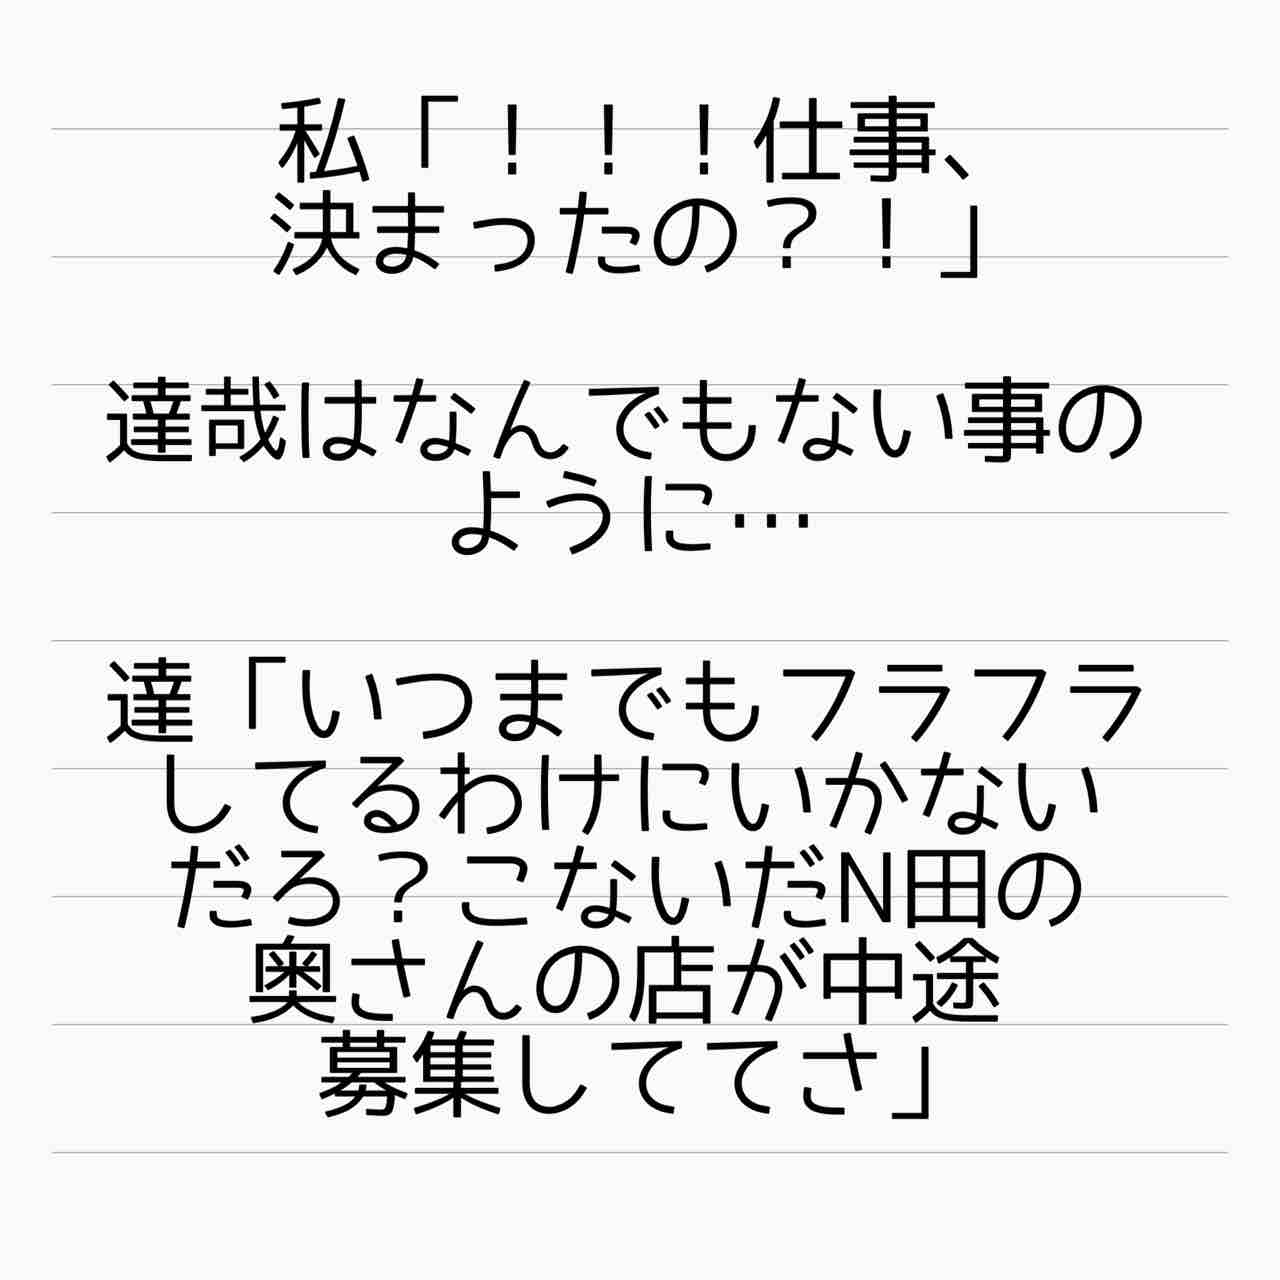 私「！！！仕事、
決まったの？！」
達哉はなんでもない事の
ように…
達「いつまでもフラフラ
してるわけにいかない
だろ？こないだN田の
奥さんの店が中途
募集しててさ」